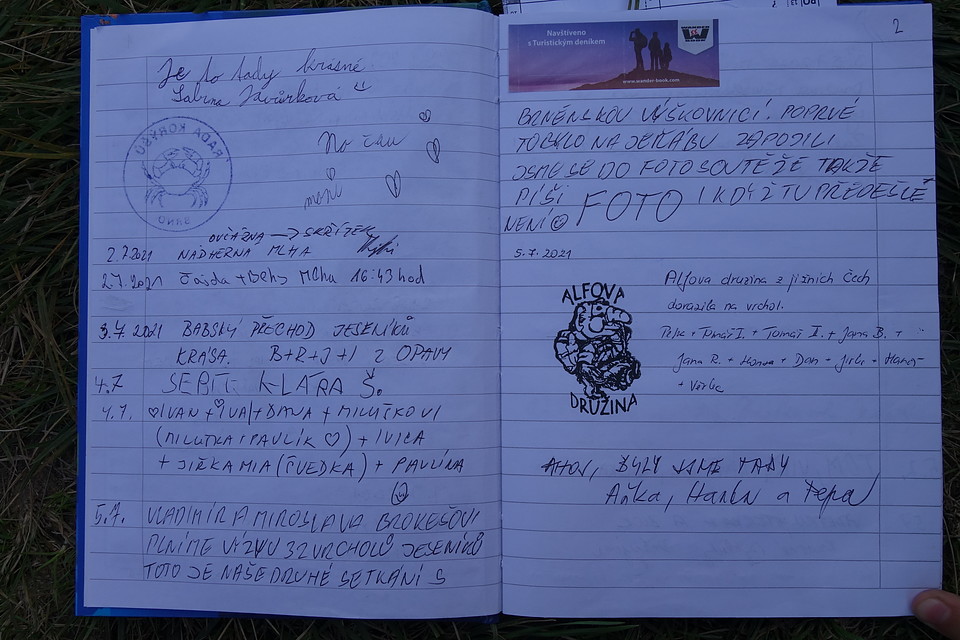 Je to tady krásné
Sabina
RADA KORÝŠŮ
BRNO
No čau
OVČÁRNA → SKŘÍTEK
2.7.2021 NÁDHERNÁ MLHA
2.7.2021 Čajda + Mlha 16:43 hod
3.7.2021 BABSKÝ PŘECHOD JESENÍKŮ
KRÁSA. B+R+J+I Z OPAVY
4.7 KLÁRA Š.
4.7. IVAN + IVA + + MILUTKOVI
(MILUTKA + PAVLÍK ♡) + IVICA
+ JIŘKA MIA (ČVEDKA) + PAVLÍNA
5.7. VLADIMÍR A MIROSLAVA BROKEŠOVI
PLNÍME VÝZVU 32 VRCHOLŮ JESENÍKŮ
TOTO JE NAŠE DRUHÉ SETKÁNÍ S
2
Navštíveno
s Turistickým deníkem
www.wander-book.com
BRNĚNSKOU VÝŠKOVNICÍ. POPRVÉ
TO BYLO NA JEŘÁBU ZAPOJILI
JSME SE DO FOTOSOUTĚŽE TAKŽE
PÍŠI FOTO I KDYŽ TU PŘEDEŠLÉ
NENÍ ☺
5.7.2021
ALFOVA
DRUŽINA
Alfova družina z jižních Čech
dorazila na vrchol.
Pepe + Tomáš I. + Tomáš I. + Jana B. +
Jana R. + Honza + Dan + Jirka +
+
AHOJ, BYLY JSME TADY
Aňka, a Pepa